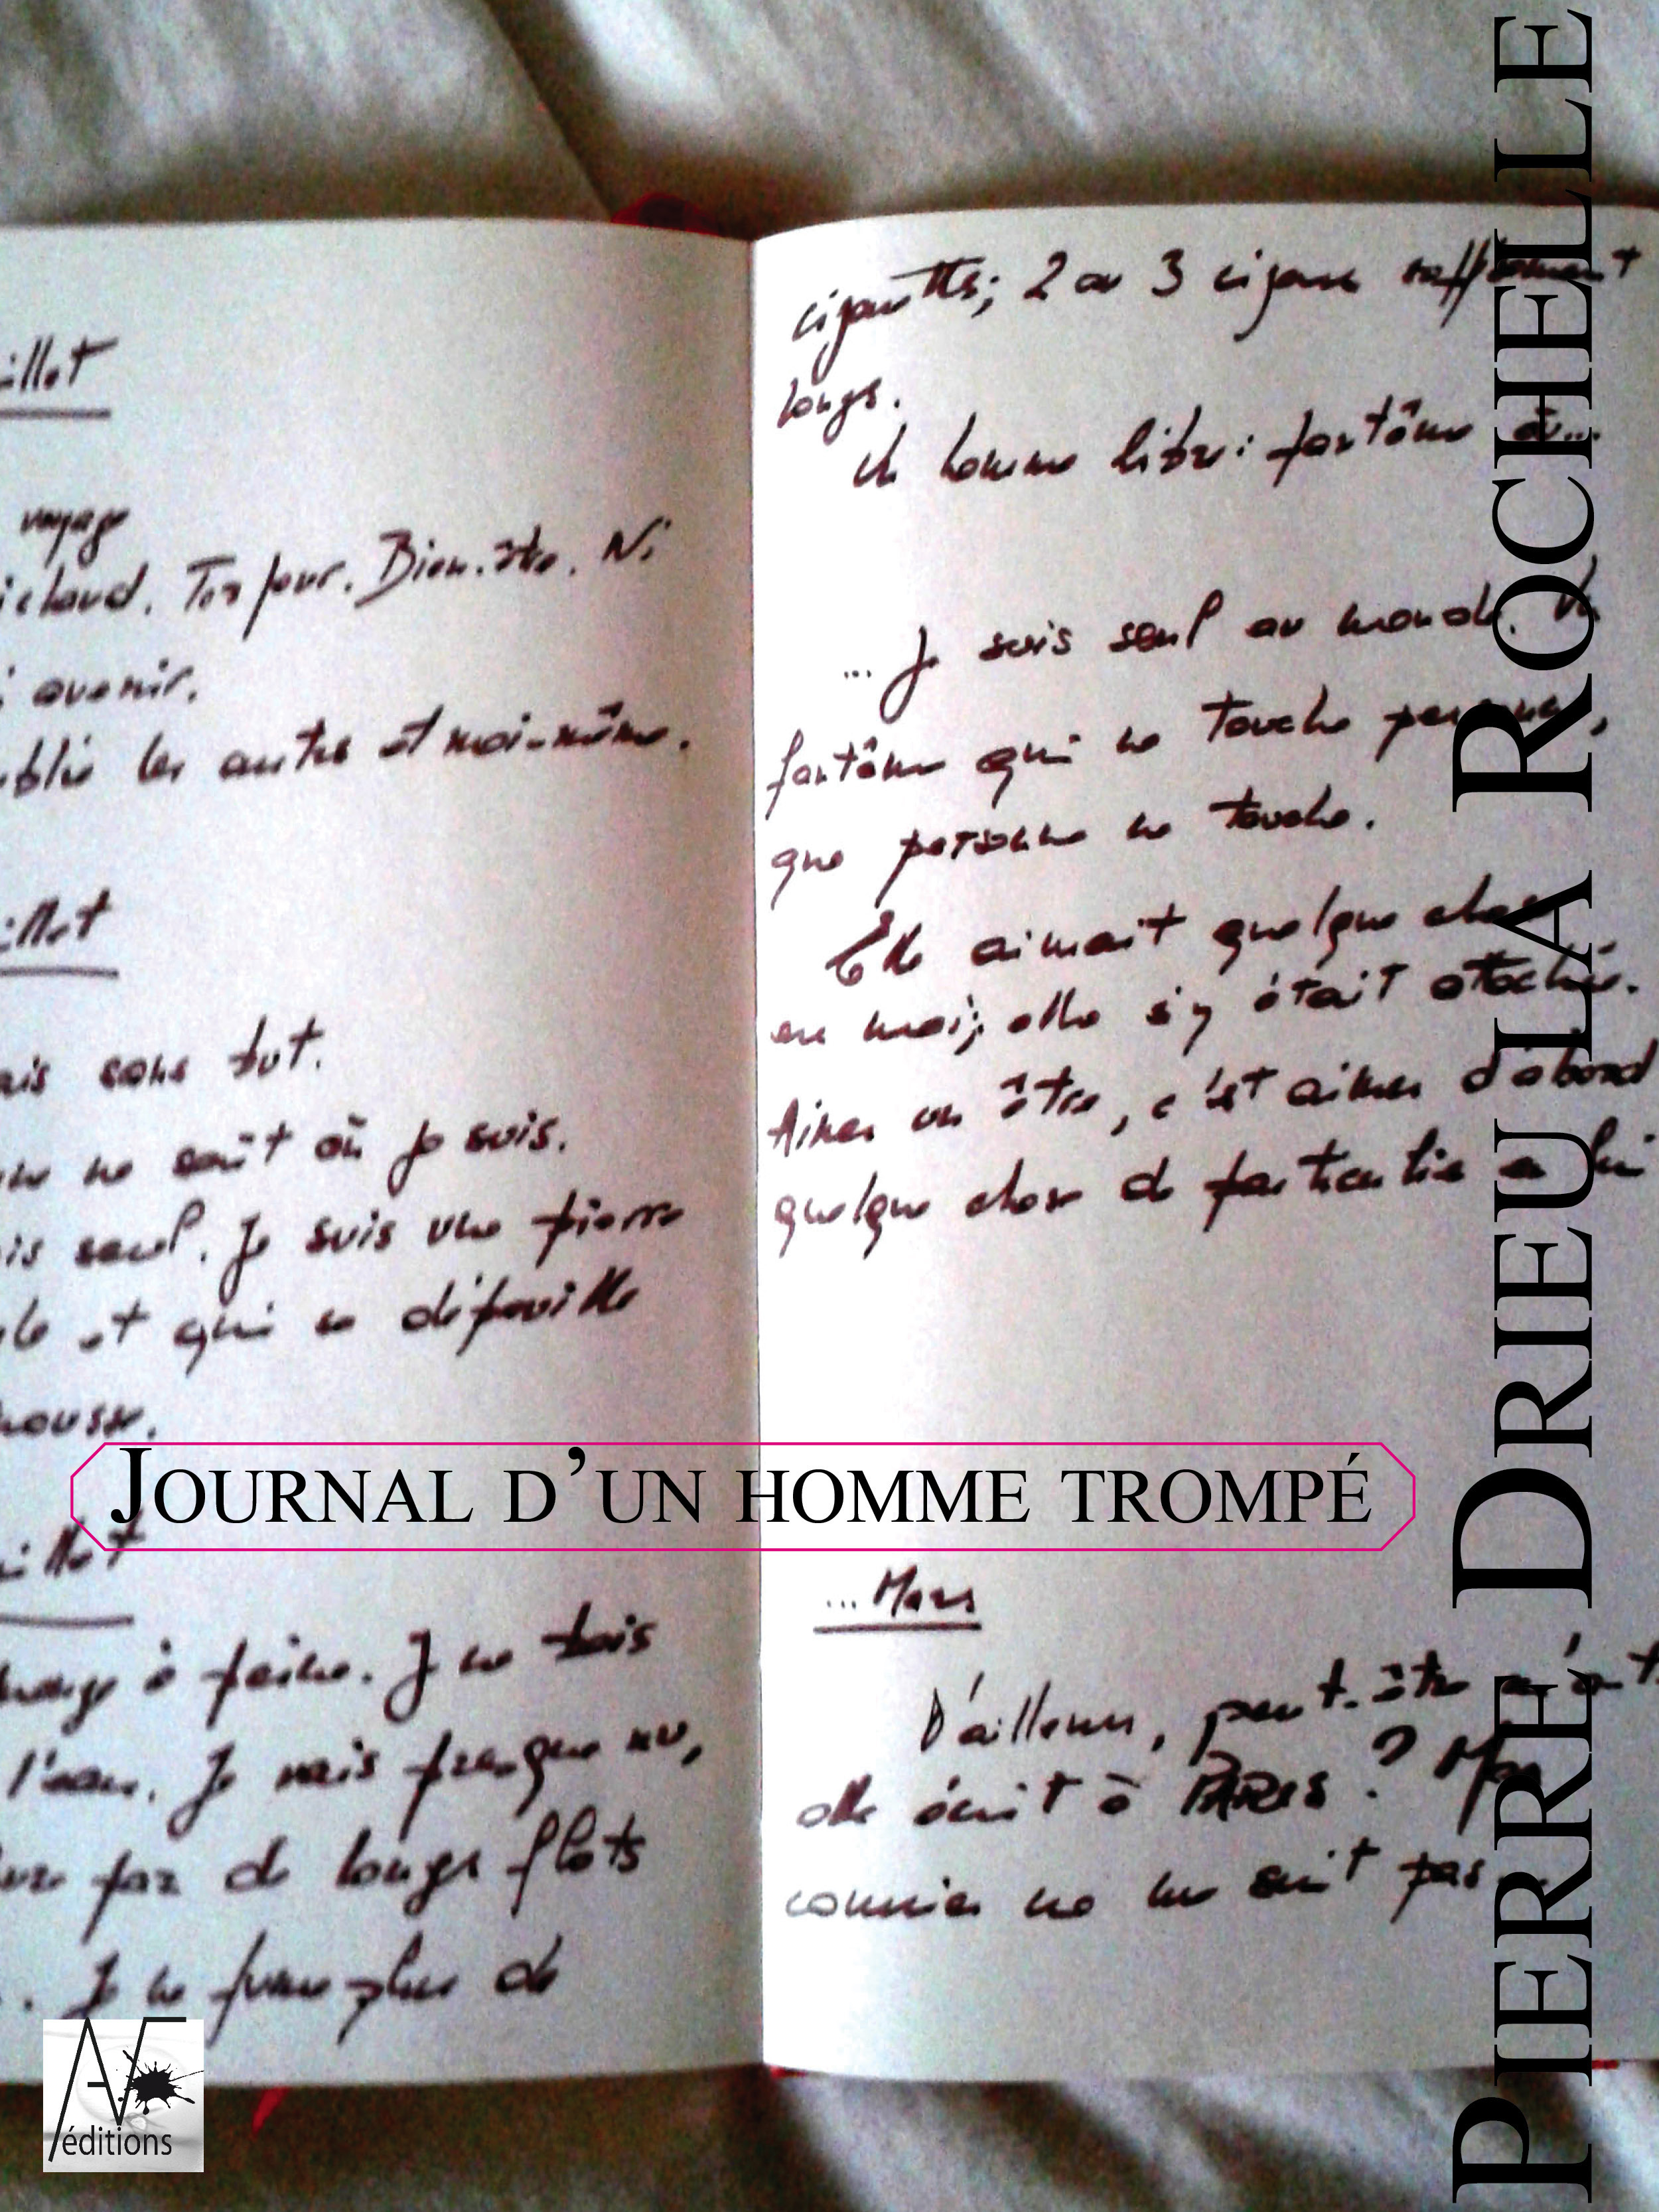 ...illet
voyage
...ichaud. Torpeur. Bien-être. Ni
...i avenir.
...ublié les autres et moi-même.
...illet
...ais sans but.
...ne ne sait où je suis.
...is seul. Je suis une pierre
...le et qui se dépouille
...mousse.
...illet
mange à peine. Je ne bois
l'eau. Je vais presque nu,
par de longs flots
. Je ne fume plus de
cigarettes; 2 ou 3 cigares
longs.
Un homme libre: fantôme ou...
... Je suis seul au monde. Un
fantôme qui ne touche personne,
que personne ne touche.
Elle aimait quelque chose
en moi; elle s'y était attachée.
Aimer un être, c'est aimer d'abord
quelque chose de particulier en lui
JOURNAL D'UN HOMME TROMPÉ
... Mars
D'ailleurs, peut-être m'a-t-
elle écrit à PARIS ? Mon
courrier ne me suit pas
PIERRE DRIEU LA ROCHELLE
AF
éditions